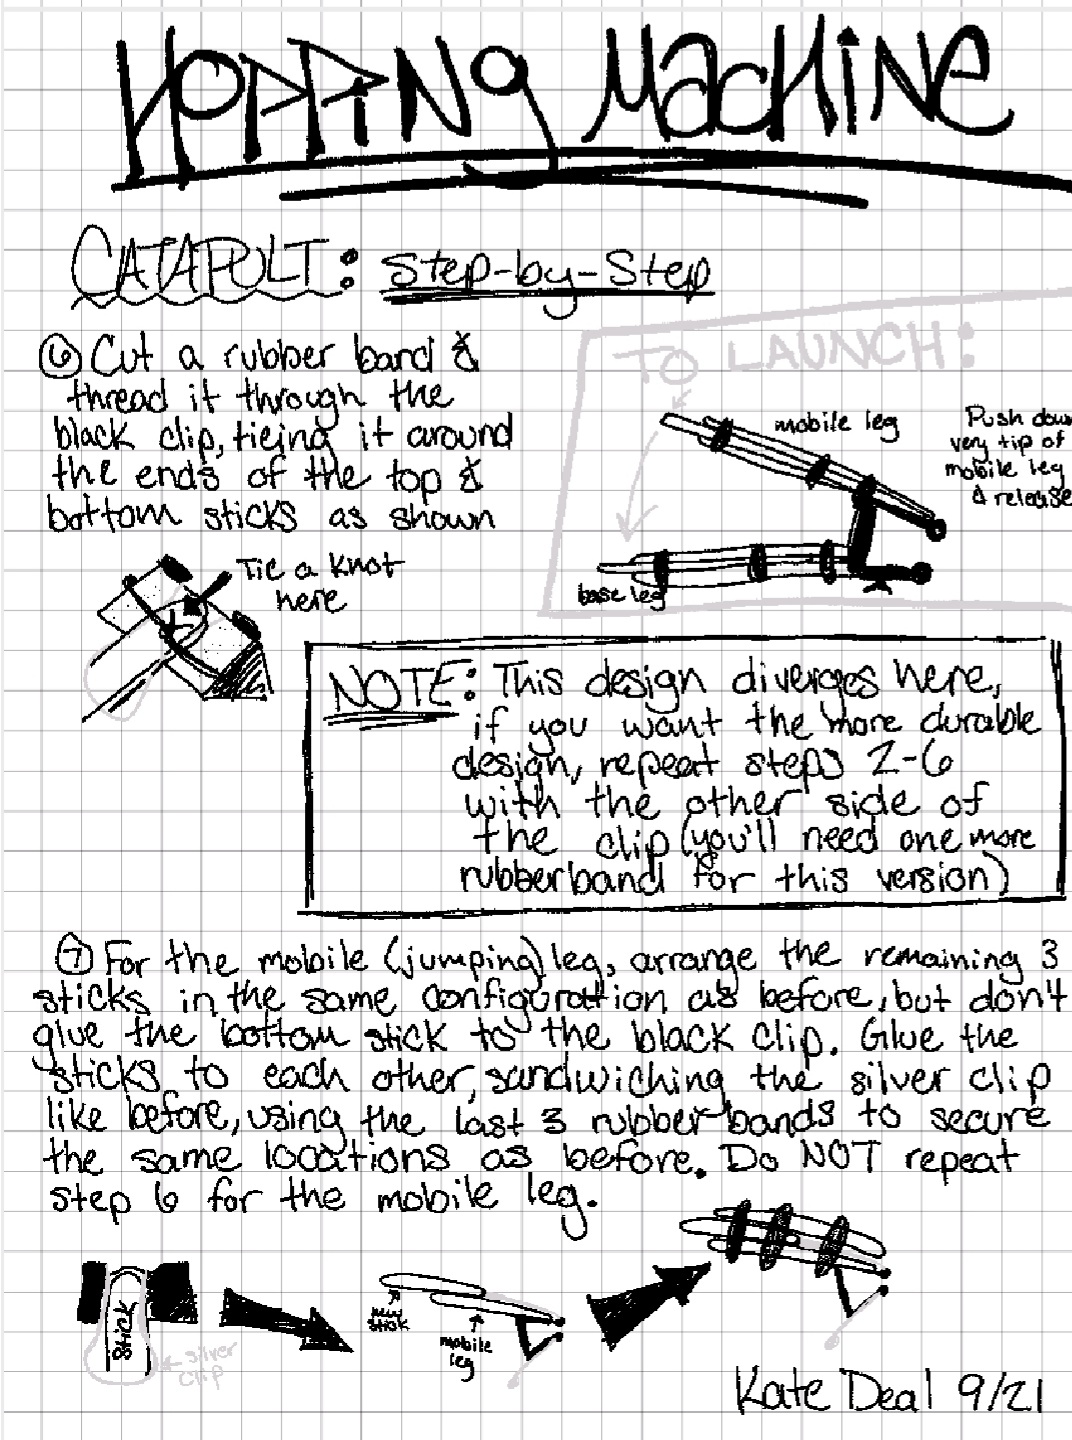 HOPPING MACHINE
CATAPULT: Step-by-Step
⑥ Cut a rubber band &
thread it through the
black clip, tieing it around
the ends of the top &
bottom sticks as shown
Tie a knot
here
TO LAUNCH:
mobile leg
Push down
very tip of
mobile leg
& release
base leg
NOTE: This design diverges here,
if you want the more durable
design, repeat steps 2-6
with the other side of
the clip (you'll need one more
rubberband for this version)
⑦ For the mobile (jumping) leg, arrange the remaining 3
sticks in the same configuration as before, but don't
glue the bottom stick to the black clip. Glue the
sticks to each other, sandwiching the silver clip
like before, using the last 3 rubber bands to secure
the same locations as before. Do NOT repeat
step 6 for the mobile leg.
STICK
silver
clip
new
stick
mobile
leg
Kate Deal 9/21